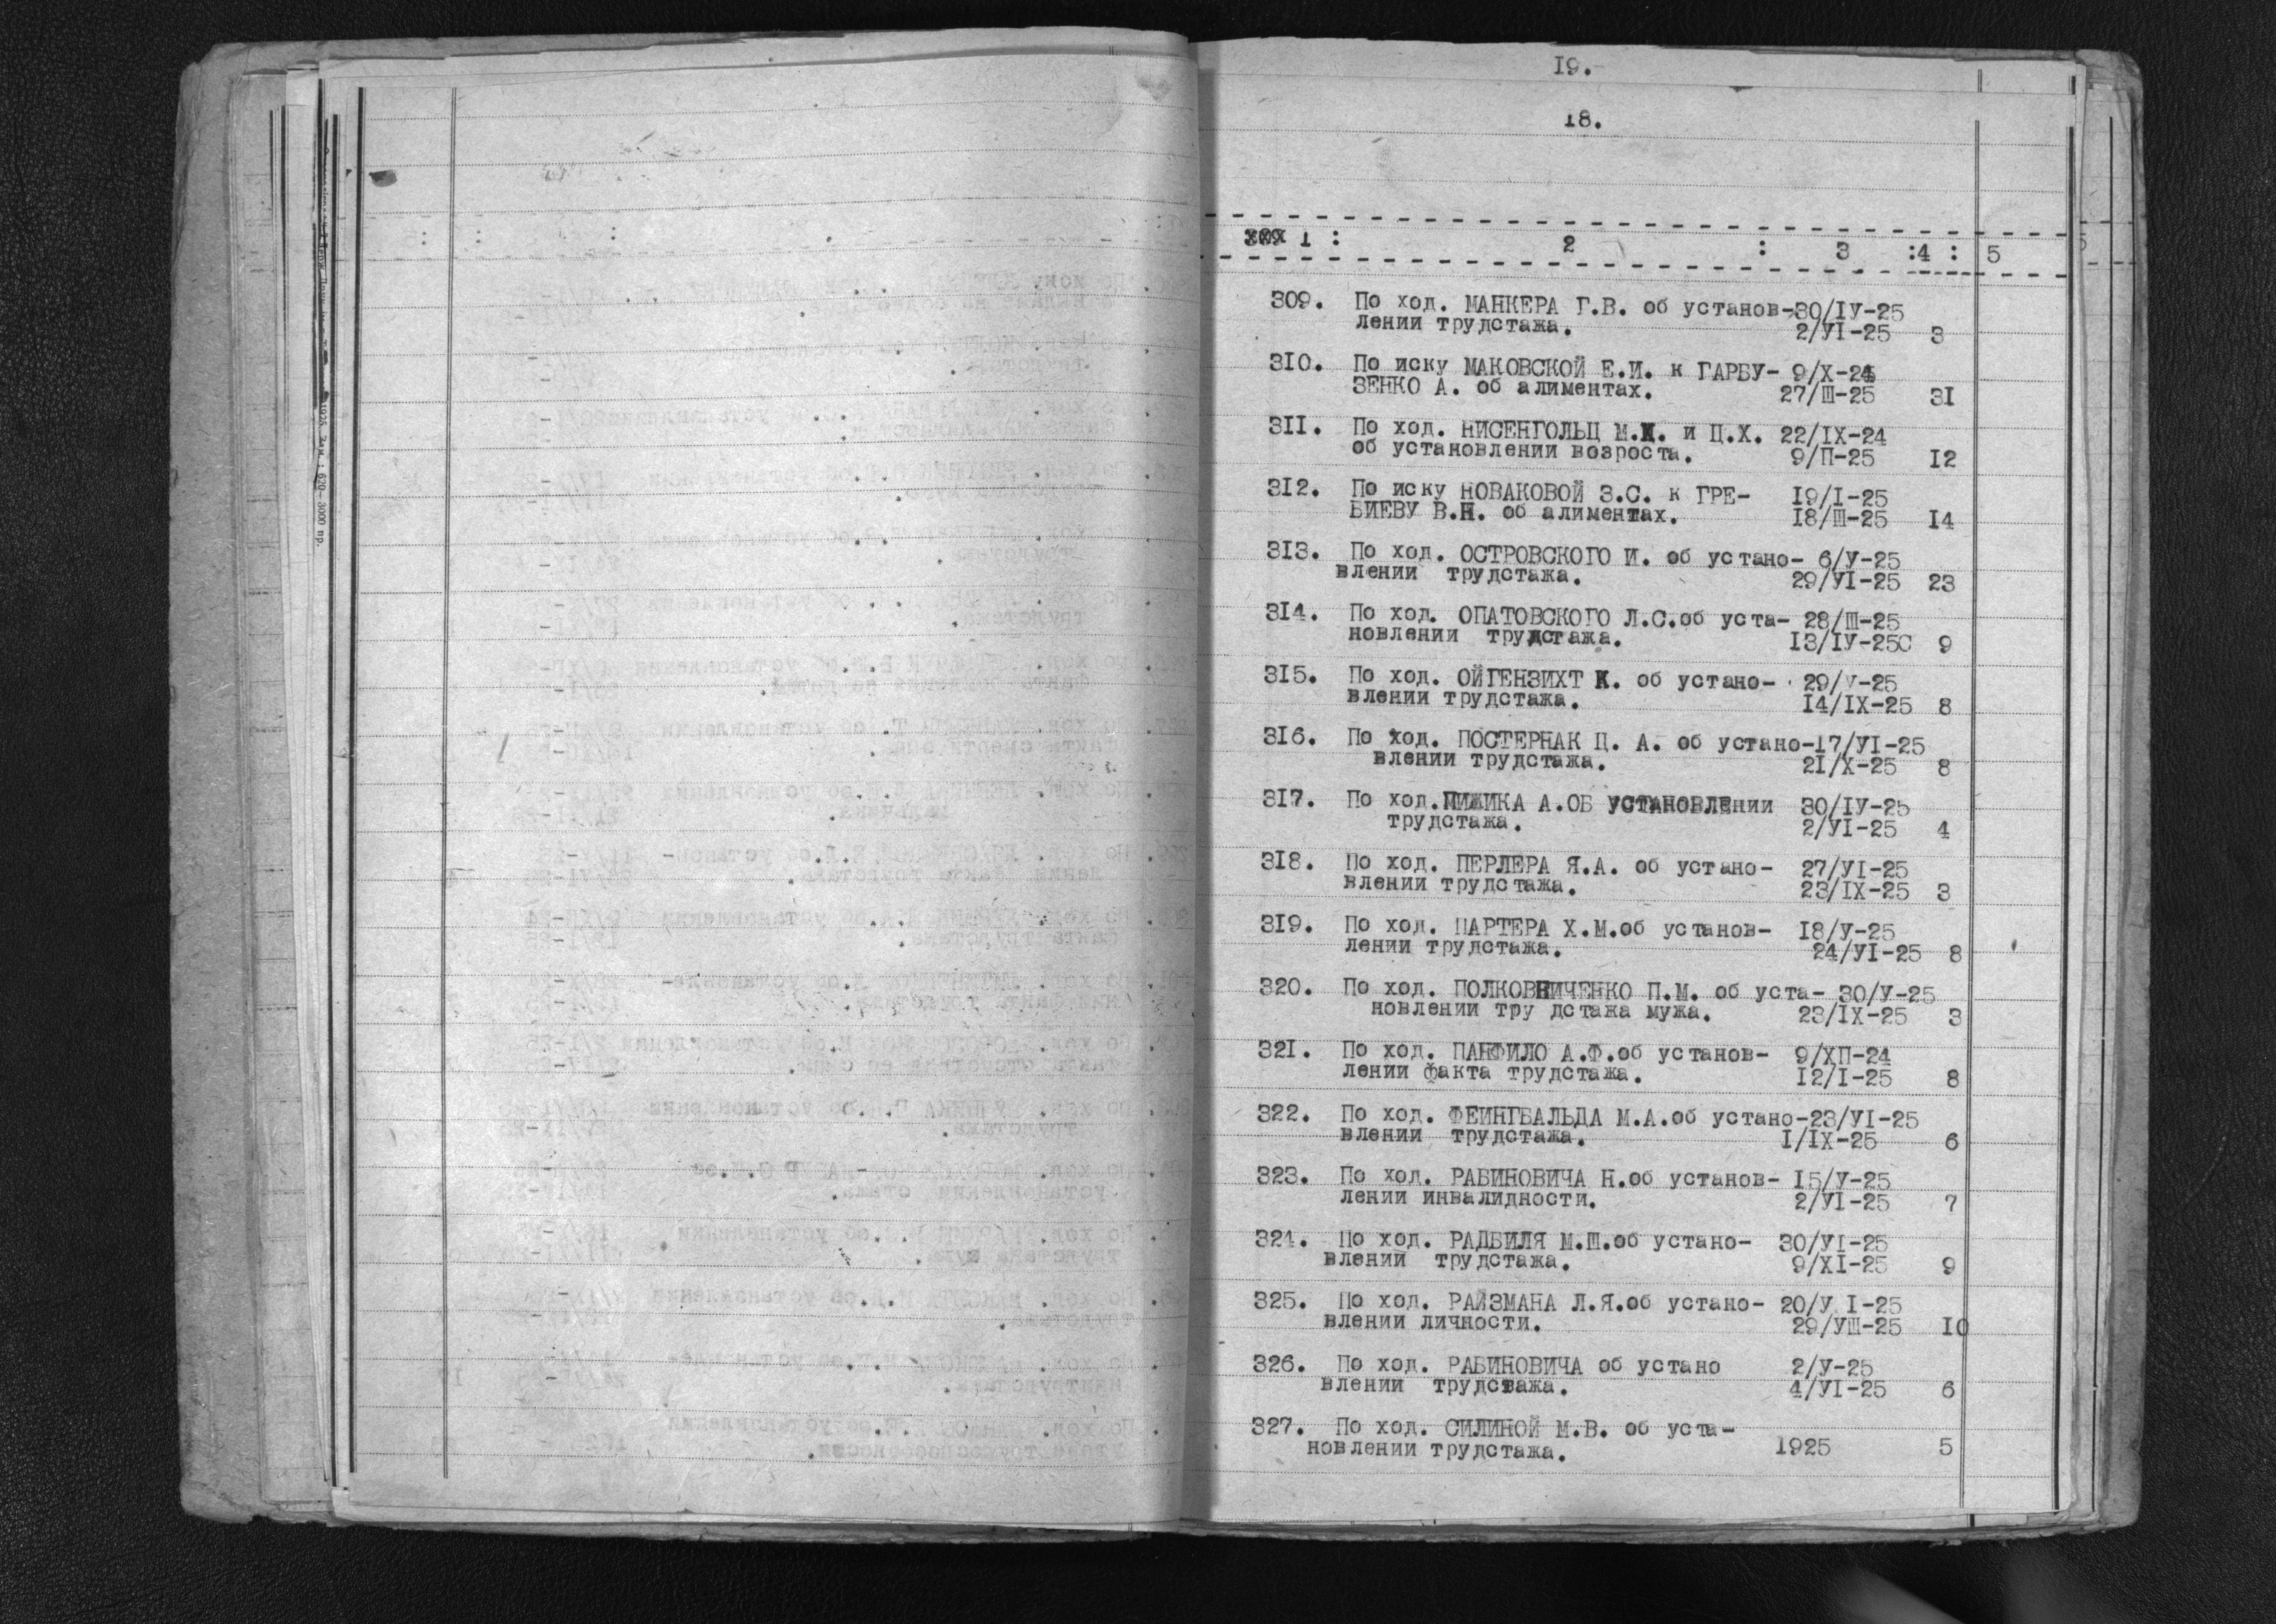 19.
18.
1 : 2 : 3 :4 : 5
309. По ход. МАНКЕРА Г.В. об установ-30/IУ-25
лении трудстажа. 2/УI-25 3
310. По иску МАКОВСКОЙ Е.И. к ГАРБУ- 9/Х-24
ЗЕНКО А. об алиментах. 27/Ш-25 31
311. По ход. НИСЕНГОЛЬЦ М. и Ц.Х. 22/IХ-24
об установлении возроста. 9/П-25 12
312. По иску НОВАКОВОЙ З.С. к ГРЕ- 19/I-25
БИЕВУ В.Н. об алиментах. 18/Ш-25 14
313. По ход. ОСТРОВСКОГО И. об устано- 6/У-25
влении трудстажа. 29/УI-25 23
314. По ход. ОПАТОВСКОГО Л.С.об уста- 28/Ш-25
новлении трудстажа. 13/IУ-25С 9
315. По ход. ОЙГЕНЗИХТ К. об устано- 29/У-25
влении трудстажа. 14/IХ-25 8
316. По ход. ПОСТЕРНАК Ц. А. об устано-17/УI-25
влении трудстажа. 21/Х-25 8
317. По ход.ПИЖИКА А.ОБ УСТАНОВЛЕнии 30/IУ-25
трудстажа. 2/УI-25 4
318. По ход. ПЕРЛЕРА Я.А. об устано- 27/УI-25
влении трудстажа. 23/IХ-25 3
319. По ход. ПАРТЕРА Х.М.об установ- 18/У-25
лении трудстажа. 24/УI-25 8
320. По ход. ПОЛКОВНИЧЕНКО П.М. об уста- 30/У-25
новлении тру дстажа мужа. 23/IХ-25 3
321. По ход. ПАНФИЛО А.Ф.об установ- 9/ХП-24
лении факта трудстажа. 12/I-25 8
322. По ход. ФЕИНГВАЛЬДА М.А.об устано-23/УI-25
влении трудстажа. I/IХ-25 6
323. По ход. РАБИНОВИЧА Н.об установ- 15/У-25
лении инвалидности. 2/УI-25 7
324. По ход. РАДБИЛЯ М.Ш.об устано- 30/УI-25
влении трудстажа. 9/ХI-25 9
325. По ход. РАЙЗМАНА Л.Я.об устано- 20/У I-25
влении личности. 29/УШ-25 10
326. По ход. РАБИНОВИЧА об устано 2/У-25
влении трудстажа. 4/УI-25 6
327. По ход. СИЛИНОЙ М.В. об уста-
новлении трудстажа. 1925 5